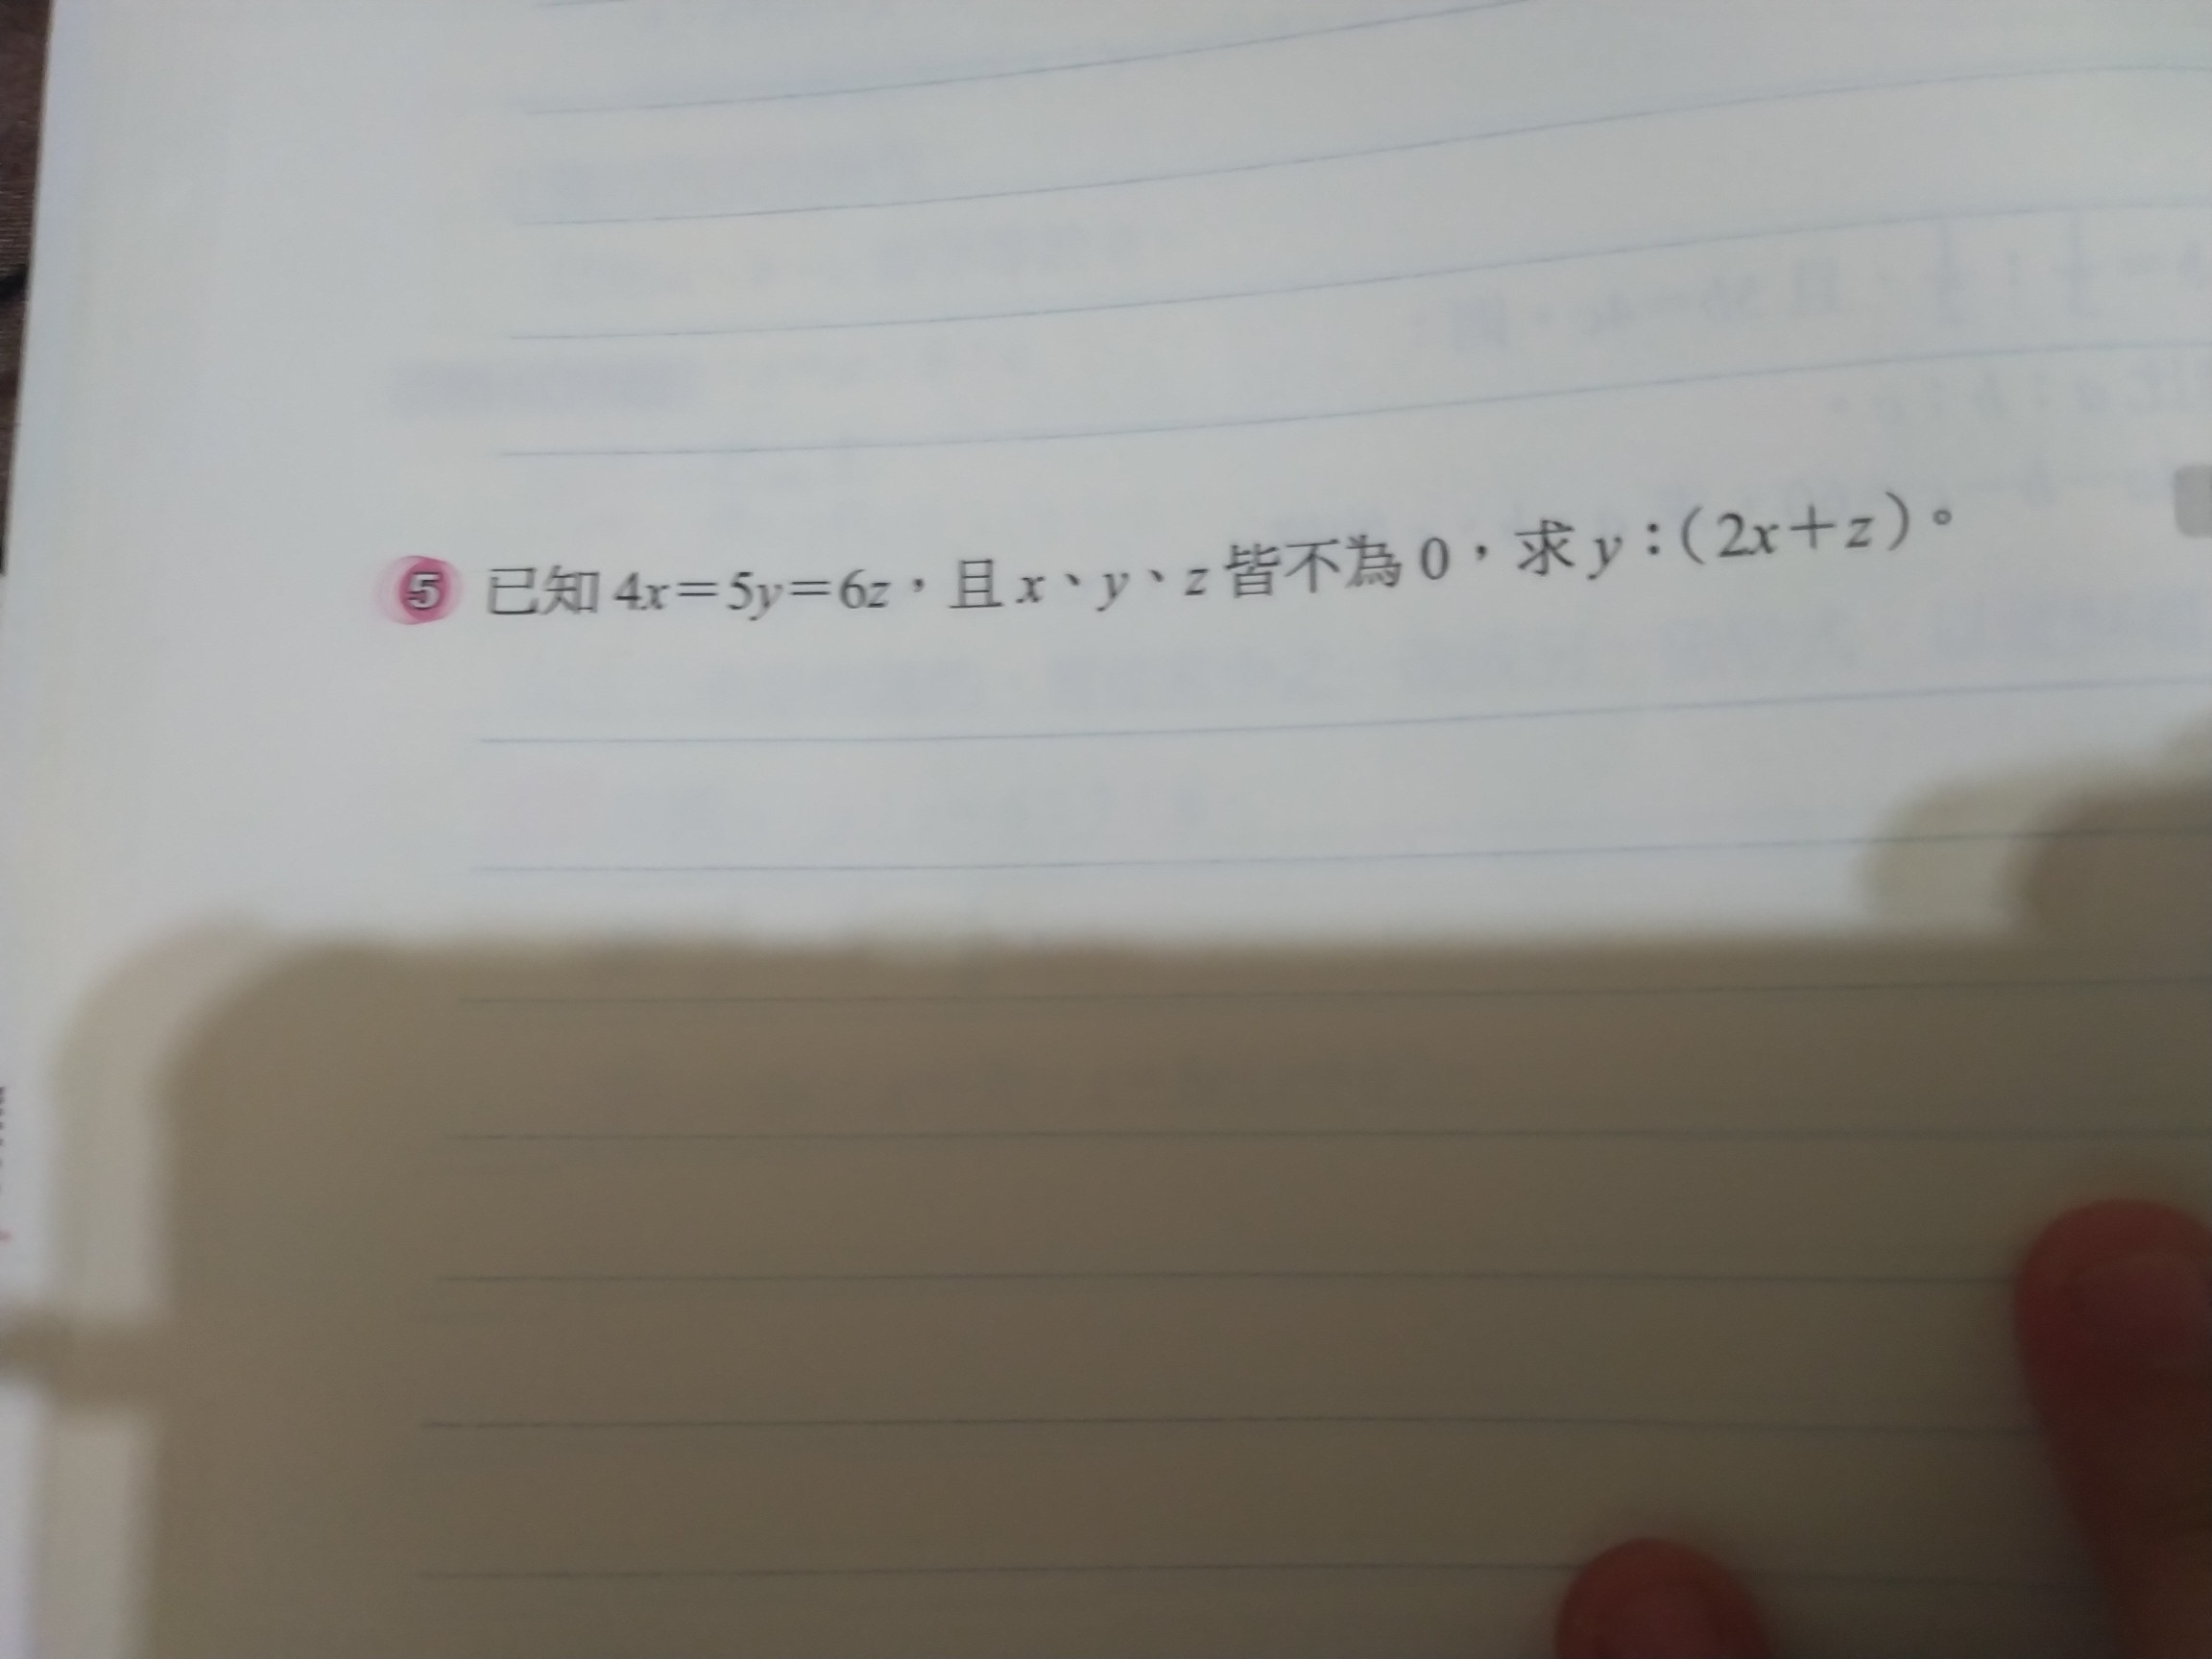 5 已知 4x=5y=6z，且 x、y、z 皆不為 0，求 y：(2x+z)。